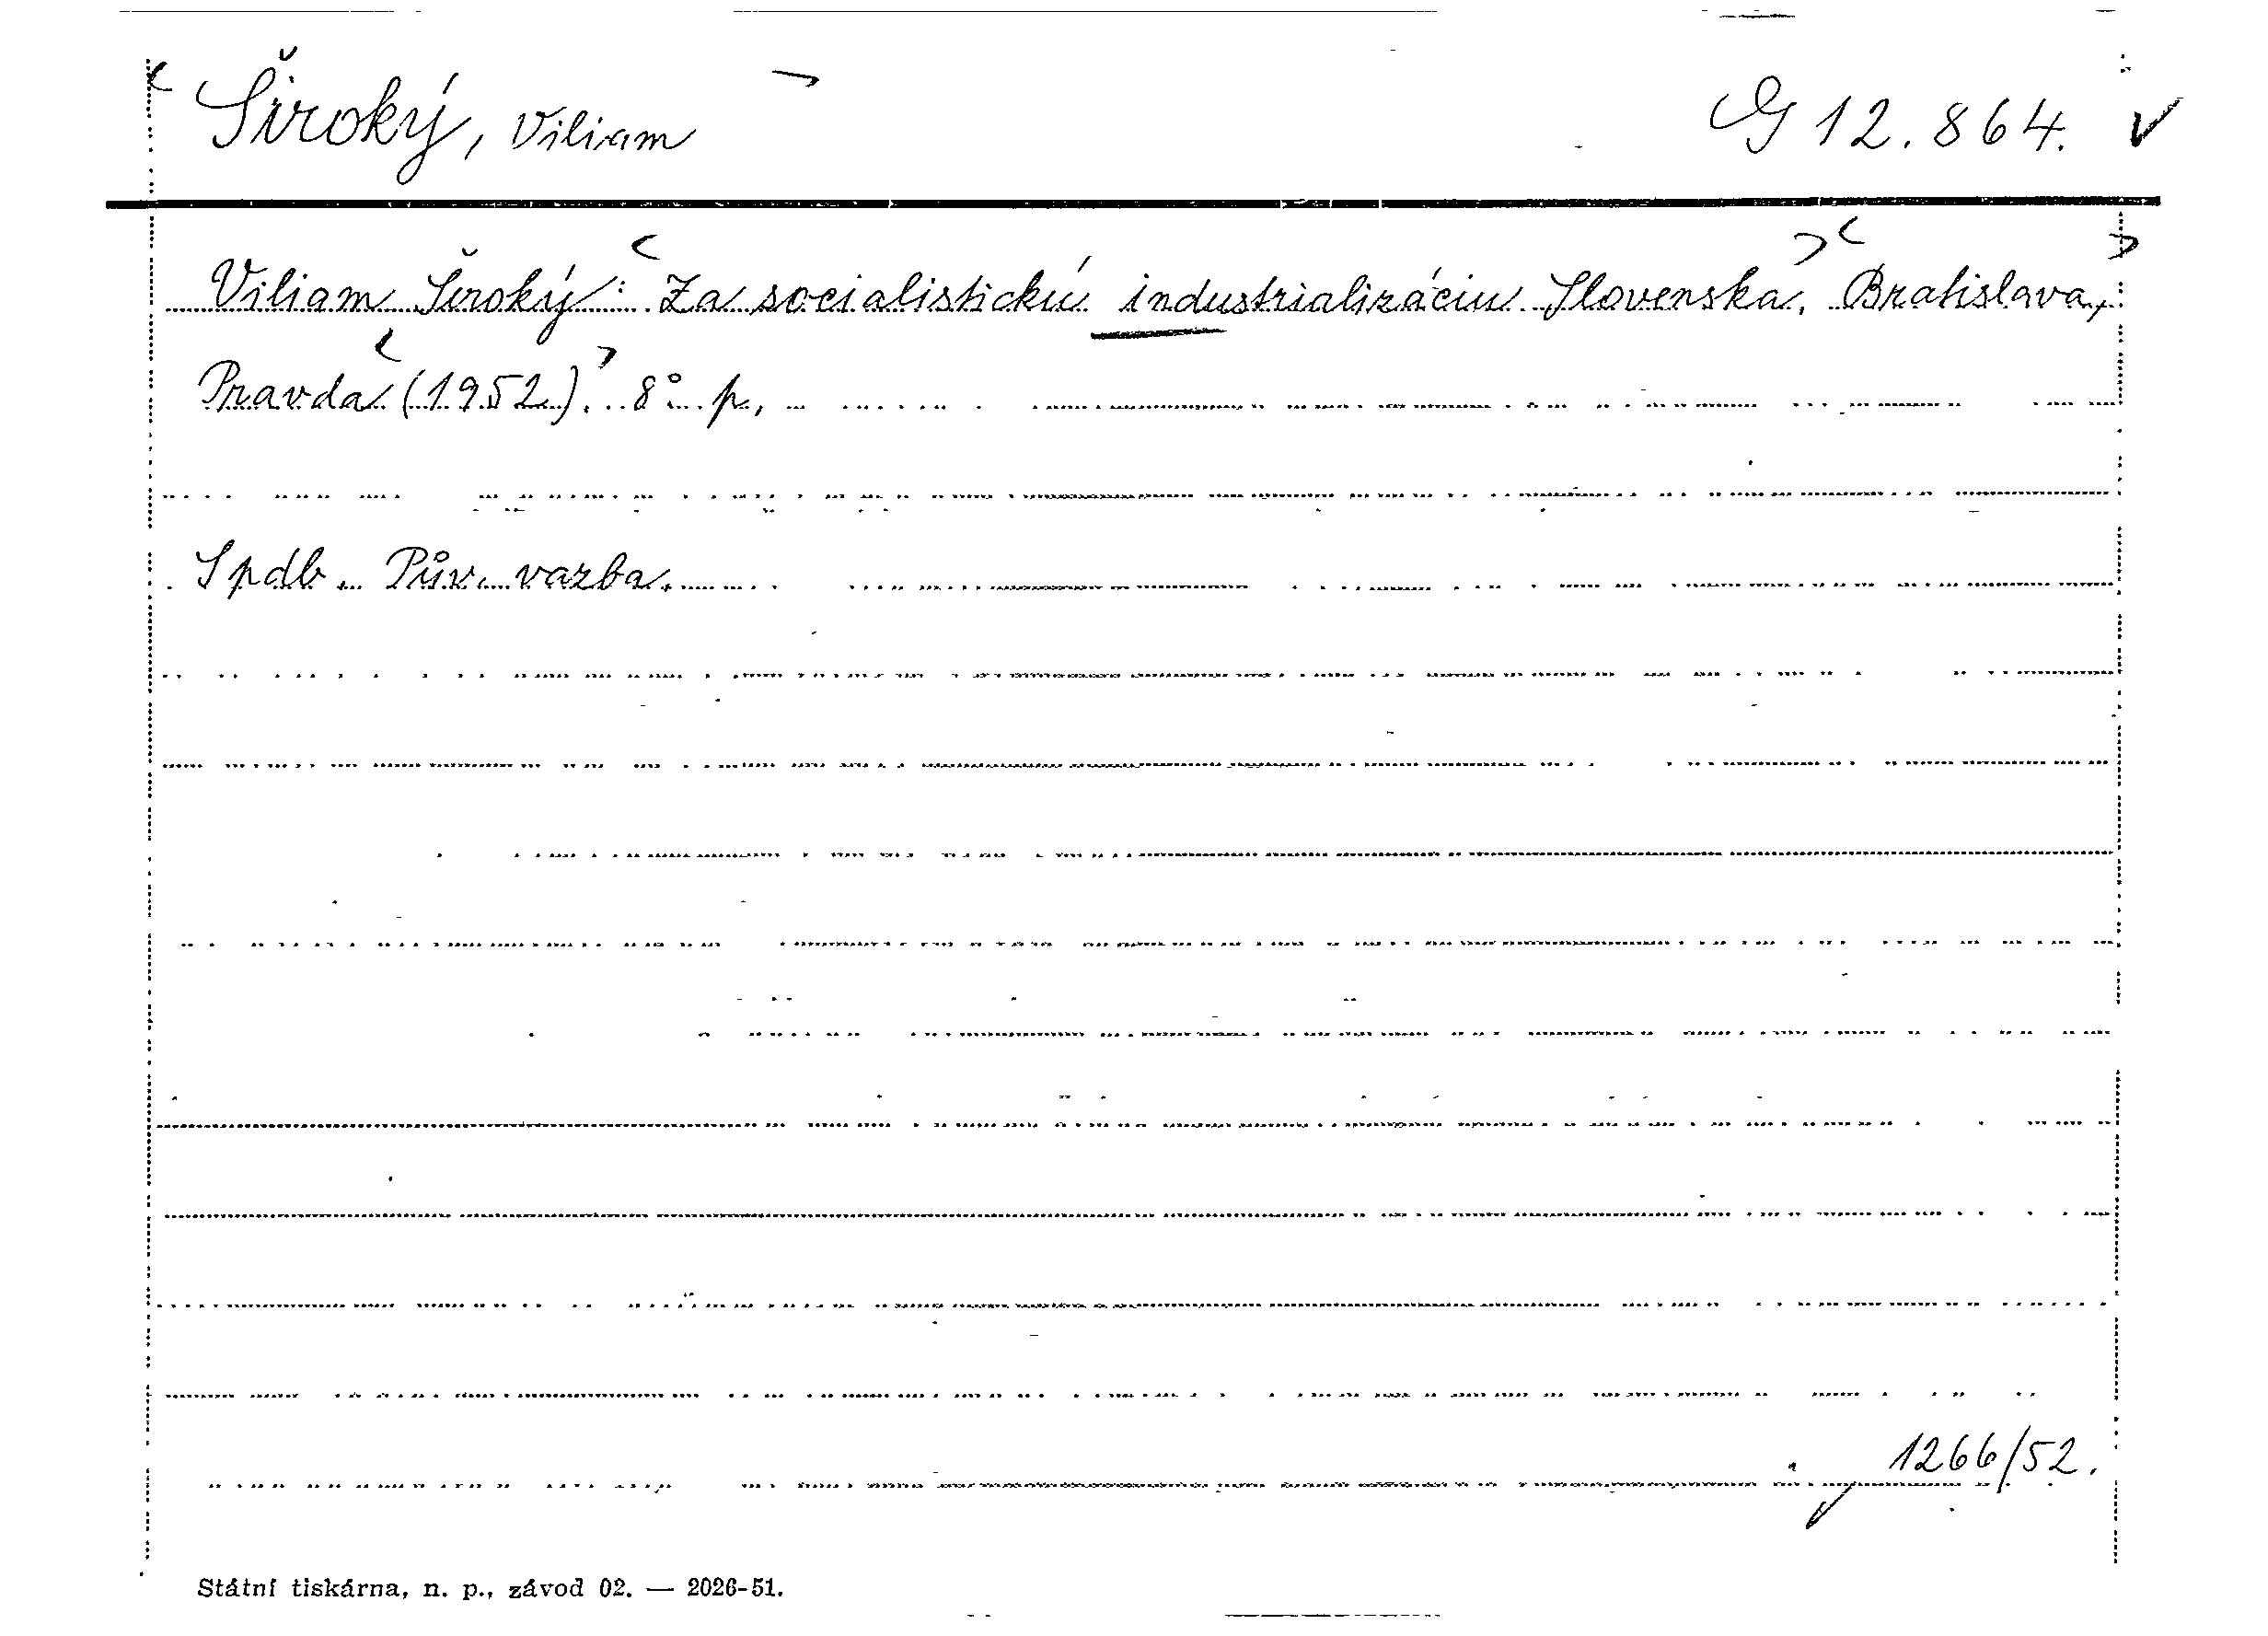 Široký, Viliam
G 12.864.
Viliam Široký: Za socialistickú industrializáciu Slovenska. Bratislava,
Pravda (1952). 8° p,
Spdb. Pův. vazba.
1266/52.
Státní tiskárna, n. p., závod 02. — 2026-51.